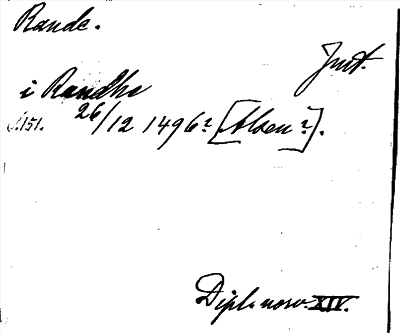 Rande.
Jmt.
i Randhe
S. 151. 26/12 1496? [Alsen?].
Dipl. norv. XIV.